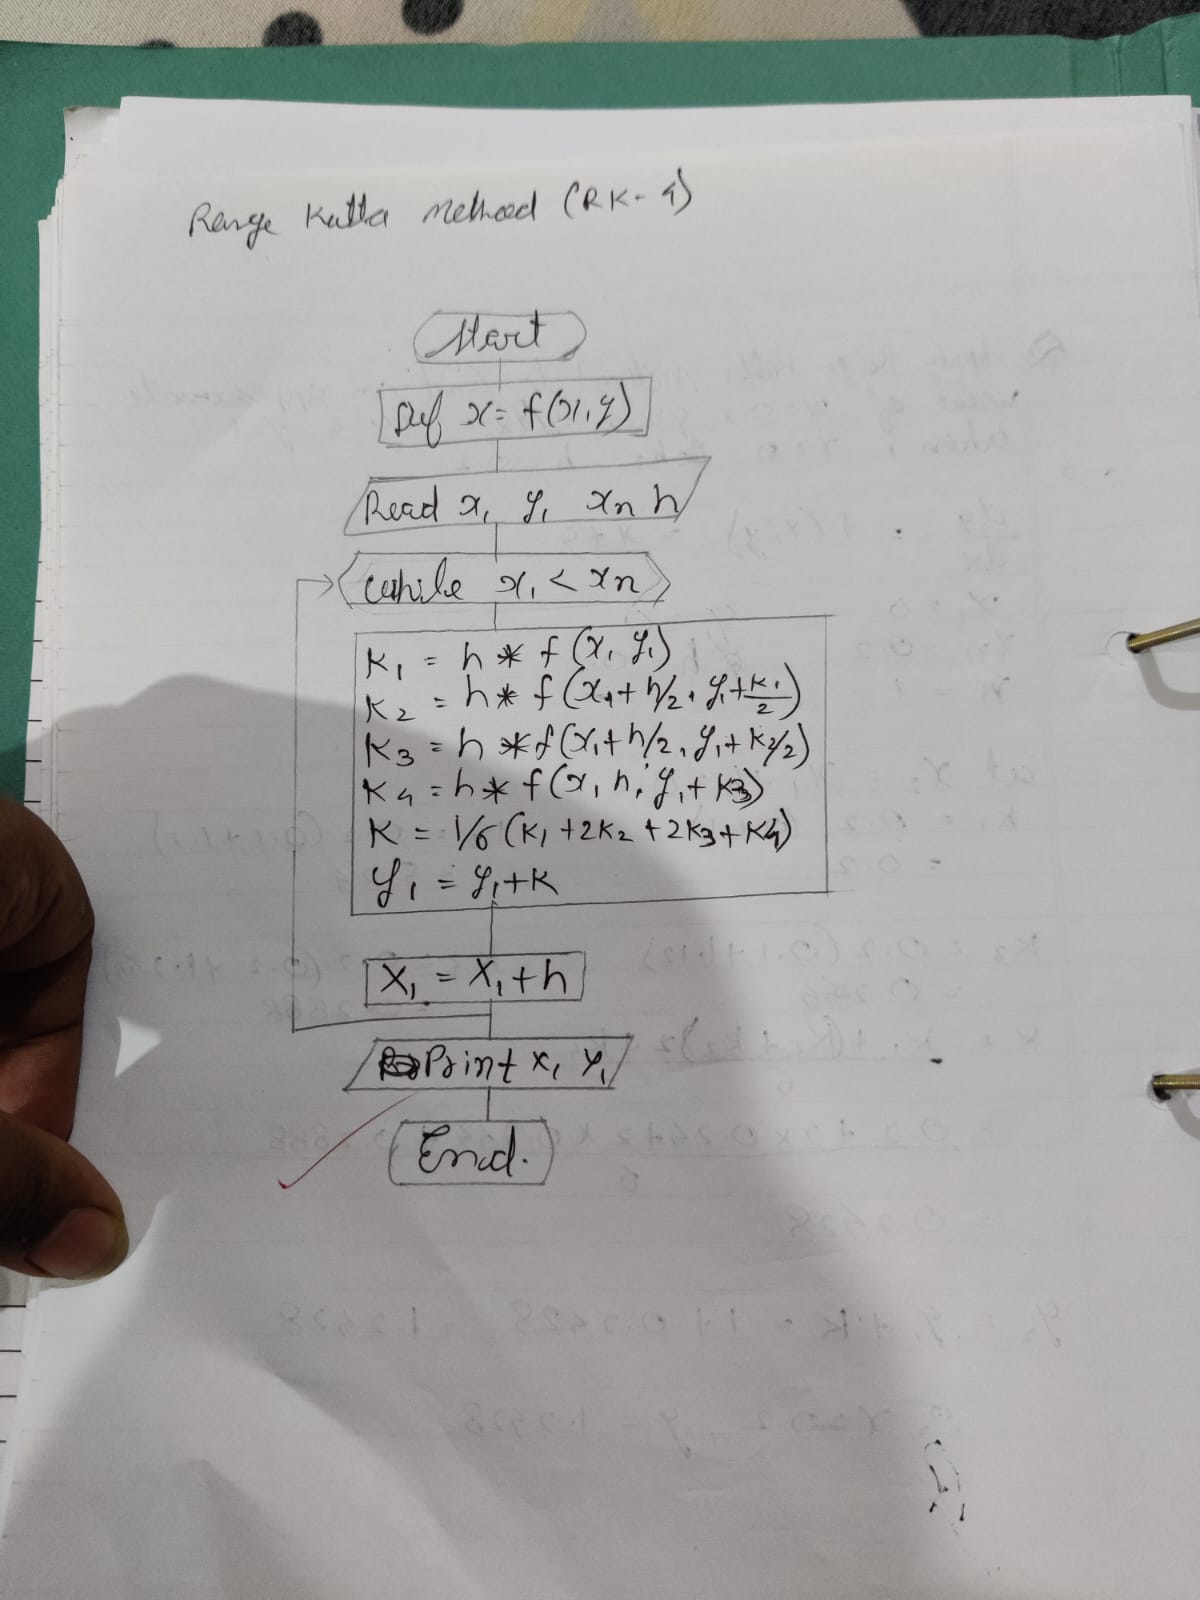 Range Kutta Method (RK-4)
Start
Def x = f(x, y)
Read x₁ y₁ xn h
While x₁ < xn
K₁ = h * f (x₁ y₁)
K₂ = h * f (x₁ + h/2, y₁ + K₁/2)
K₃ = h * f (x₁ + h/2, y₁ + K₂/2)
K₄ = h * f (x₁ h, y₁ + K₃)
K = 1/6 (K₁ + 2K₂ + 2K₃ + K₄)
y₁ = y₁ + K
X₁ = X₁ + h
Print x₁ y₁
End.